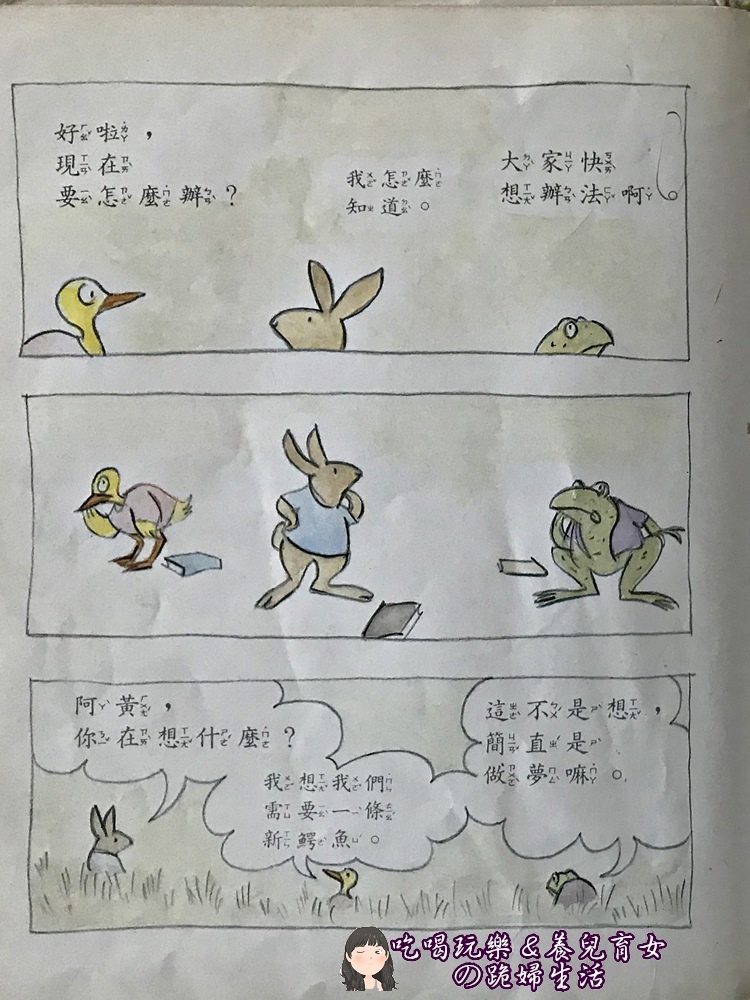 好啦，
現在
要怎麼辦？
我怎麼
知道。
大家快
想辦法啊
阿黃，
你在想什麼？
我想我們
需要一條
新鱷魚。
這不是想，
簡直是
做夢嘛。
吃喝玩樂&養兒育女
の跪婦生活